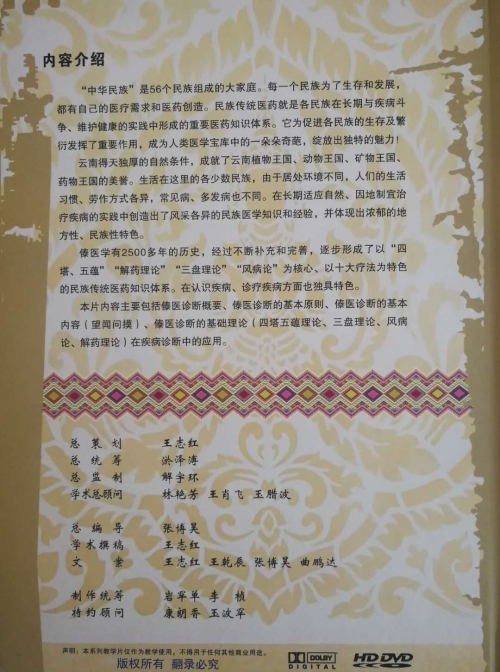 内容介绍
“中华民族”是56个民族组成的大家庭。每一个民族为了生存和发展，
都有自己的医疗需求和医药创造。民族传统医药就是各民族在长期与疾病斗
争、维护健康的实践中形成的重要医药知识体系。它为促进各民族的生存及繁
衍发挥了重要作用，成为人类医学宝库中的一朵朵奇葩，绽放出独特的魅力！
云南得天独厚的自然条件，成就了云南植物王国、动物王国、矿物王国、
药物王国的美誉。生活在这里的各少数民族，由于居处环境不同，人们的生活
习惯、劳作方式各异，常见病、多发病也不同。在长期适应自然、因地制宜治
疗疾病的实践中创造出了风采各异的民族医学知识和经验，并体现出浓郁的地
方性、民族性特色。
傣医学有2500多年的历史，经过不断补充和完善，逐步形成了以“四
塔、五蕴”“解药理论”“三盘理论”“风病论”为核心、以十大疗法为特色
的民族传统医药知识体系。在认识疾病、诊疗疾病方面也独具特色。
本片内容主要包括傣医诊断概要、傣医诊断的基本原则、傣医诊断的基本
内容（望闻问摸）、傣医诊断的基础理论（四塔五蕴理论、三盘理论、风病
论、解药理论）在疾病诊断中的应用。
总策划 王志红
总统筹 洪泽溥
总监制 解宇环
学术总顾问 林艳芳 王肖飞 玉腊波
总编导 张博昊
学术撰稿 王志红
文案 王志红 王乾辰 张博昊 曲鹏达
制作统筹 岩罕单 李桢
特约顾问 康朗香 玉波罕
声明：本系列教学片仅作为教学使用，不得用于任何其他商业用途。
版权所有 翻录必究
DOLBY
DIGITAL
HD DVD